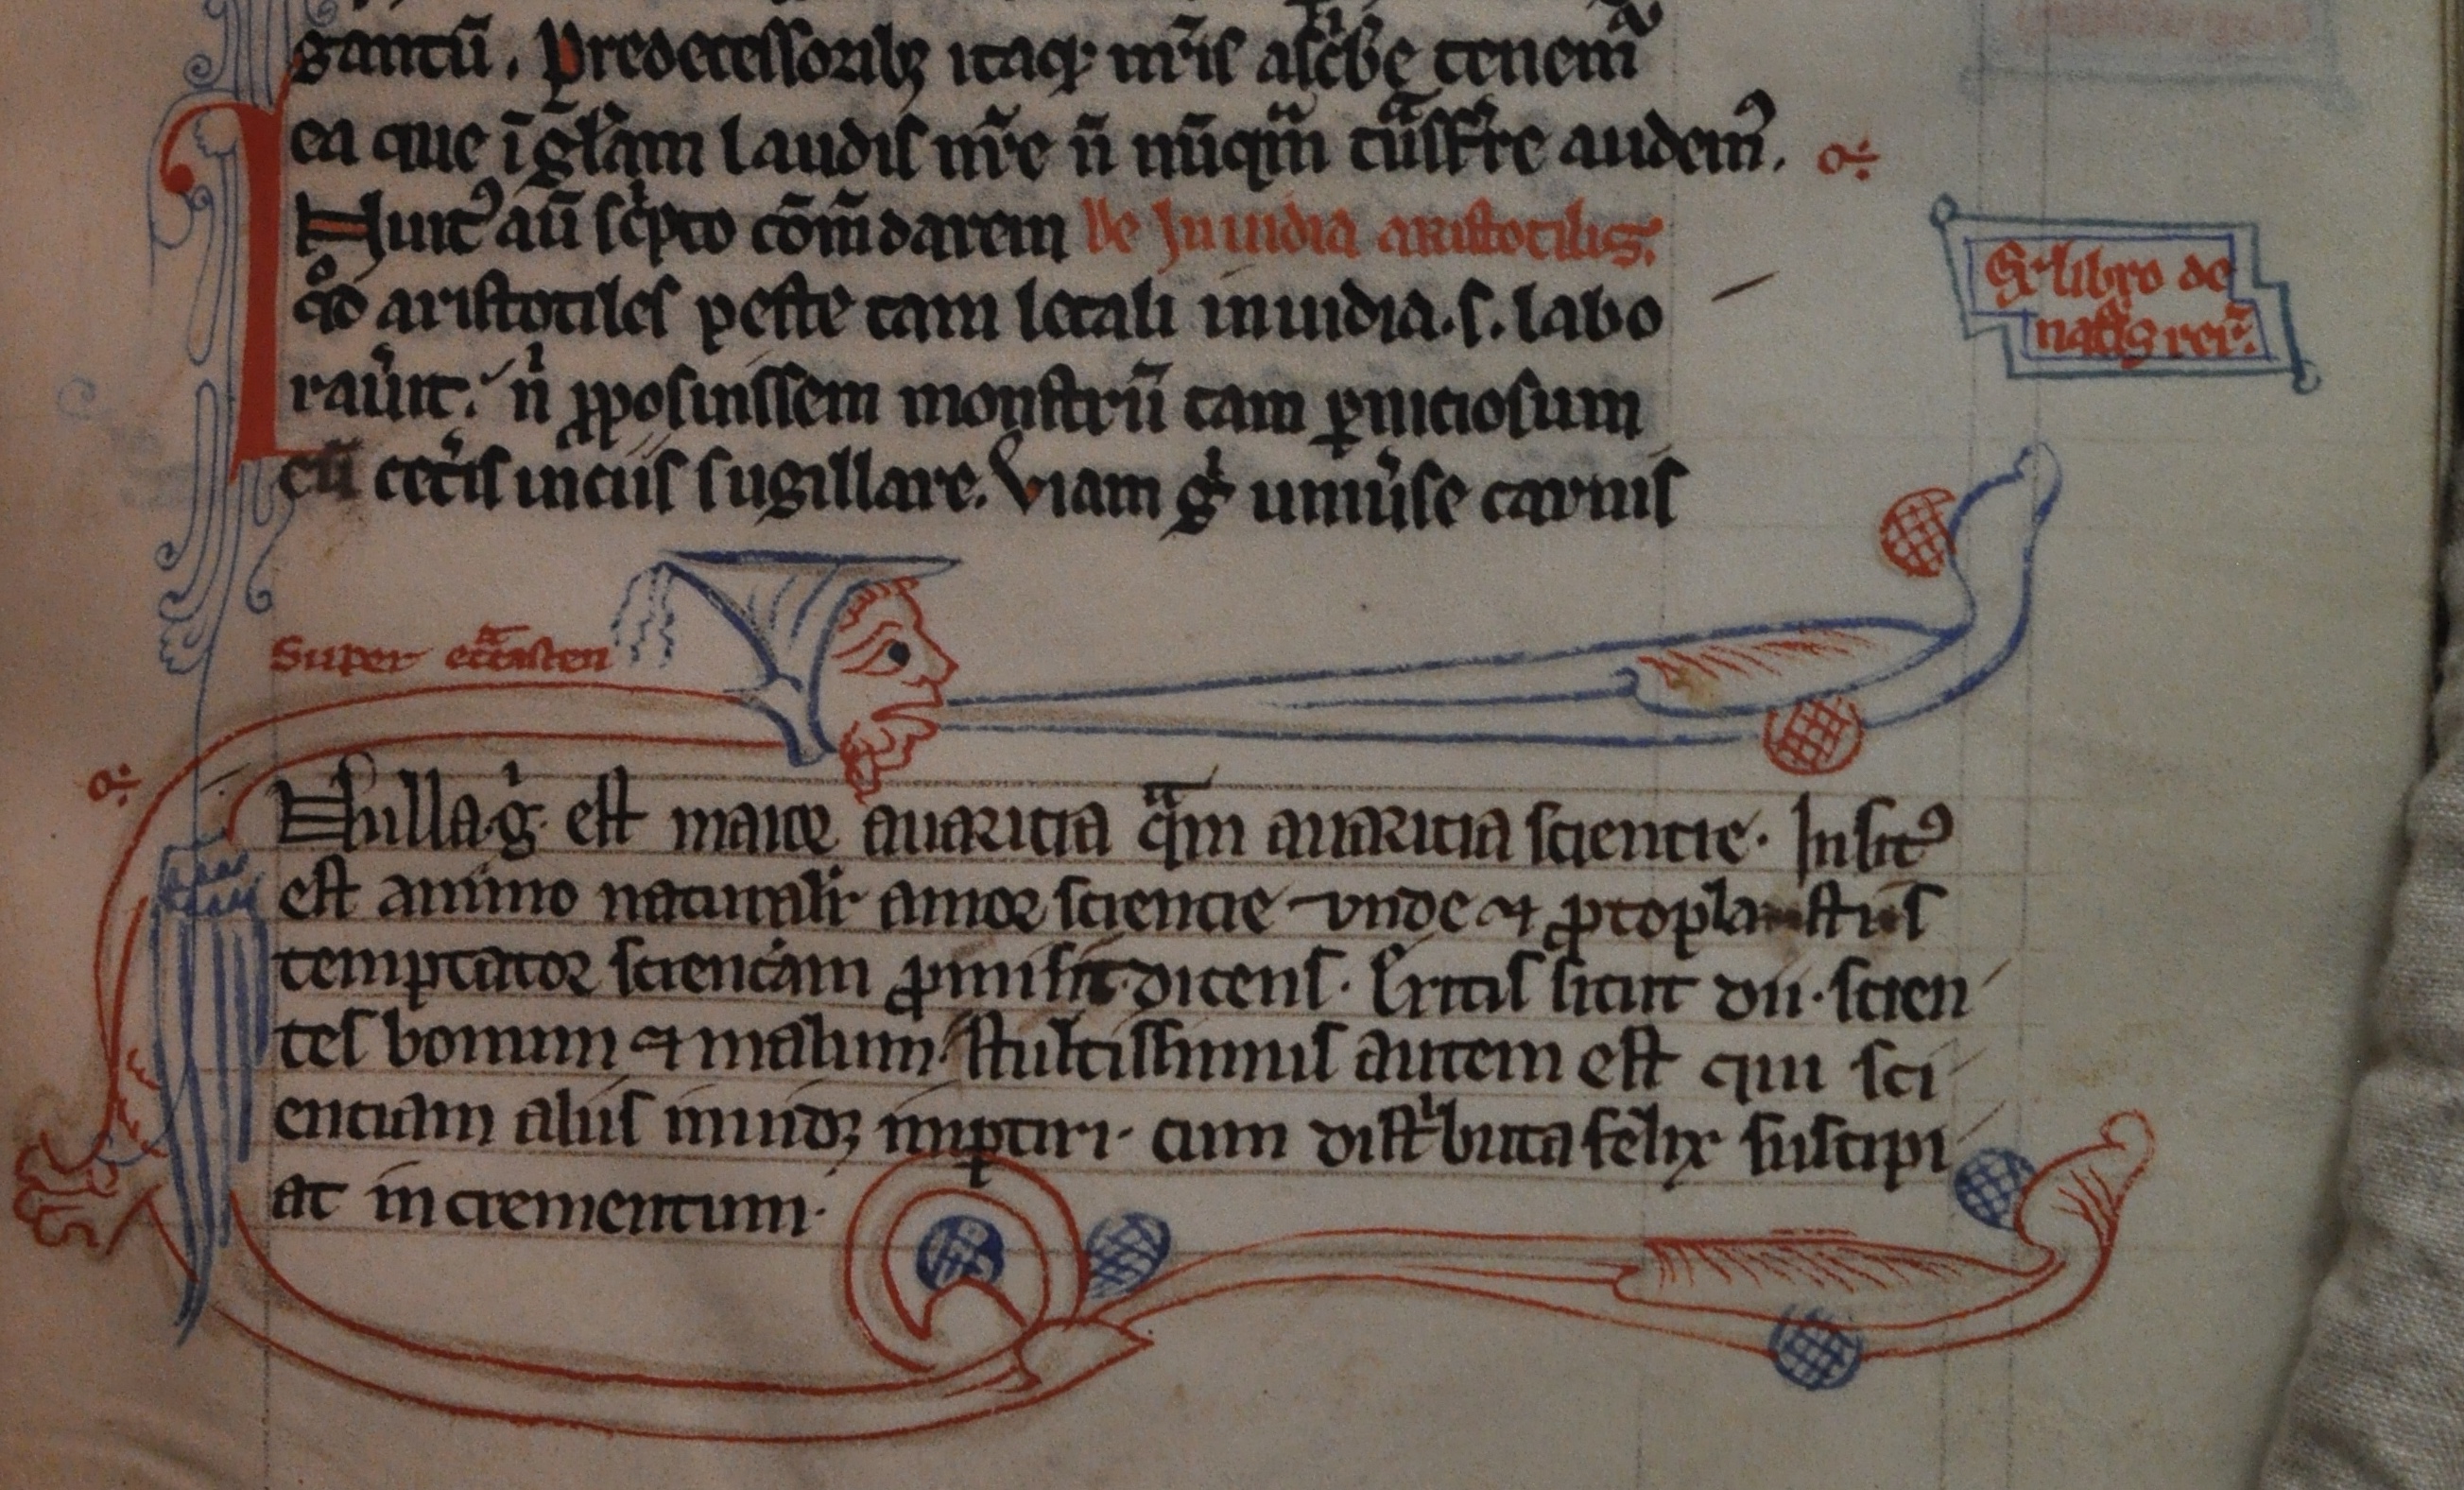 gantū. Predecessoribꝫ itaqꝫ nr̄is asc̄be tenem̄
ea que ī gl̄am laudis nr̄e n̄ nūqm̄ tͣsferre audemꝰ.
Huicꝰ aū sc̄pto cōm̄darem De Inuidia aristotilis.
qd̄ aristotiles peste tam letali inuidia .s. labo
rau̅it. n̄ ꝓposuissem monstrū tam ꝑniciosum
cū cet̄is uiciis sugillare. Viam gͥ uniu̅se carnis
Sͬ libro de
nat̄is rer̄.
Super ecc̄asten
Nulla gͥ est maior auaricia qͣm auaricia sciencie. Insitꝰ
est animo naturalit̄ amor sciencie vnde ⁊ ꝓtoplastis
temptator scienciam ꝓmisit dicens. Eritis sicut dii. scien
tes bonum ⁊ malum. stultissimus autem est qui sci
enciam aliis inuidꝫ imꝑtiri. cum distͥbuta felix suscipi
at incrementum.